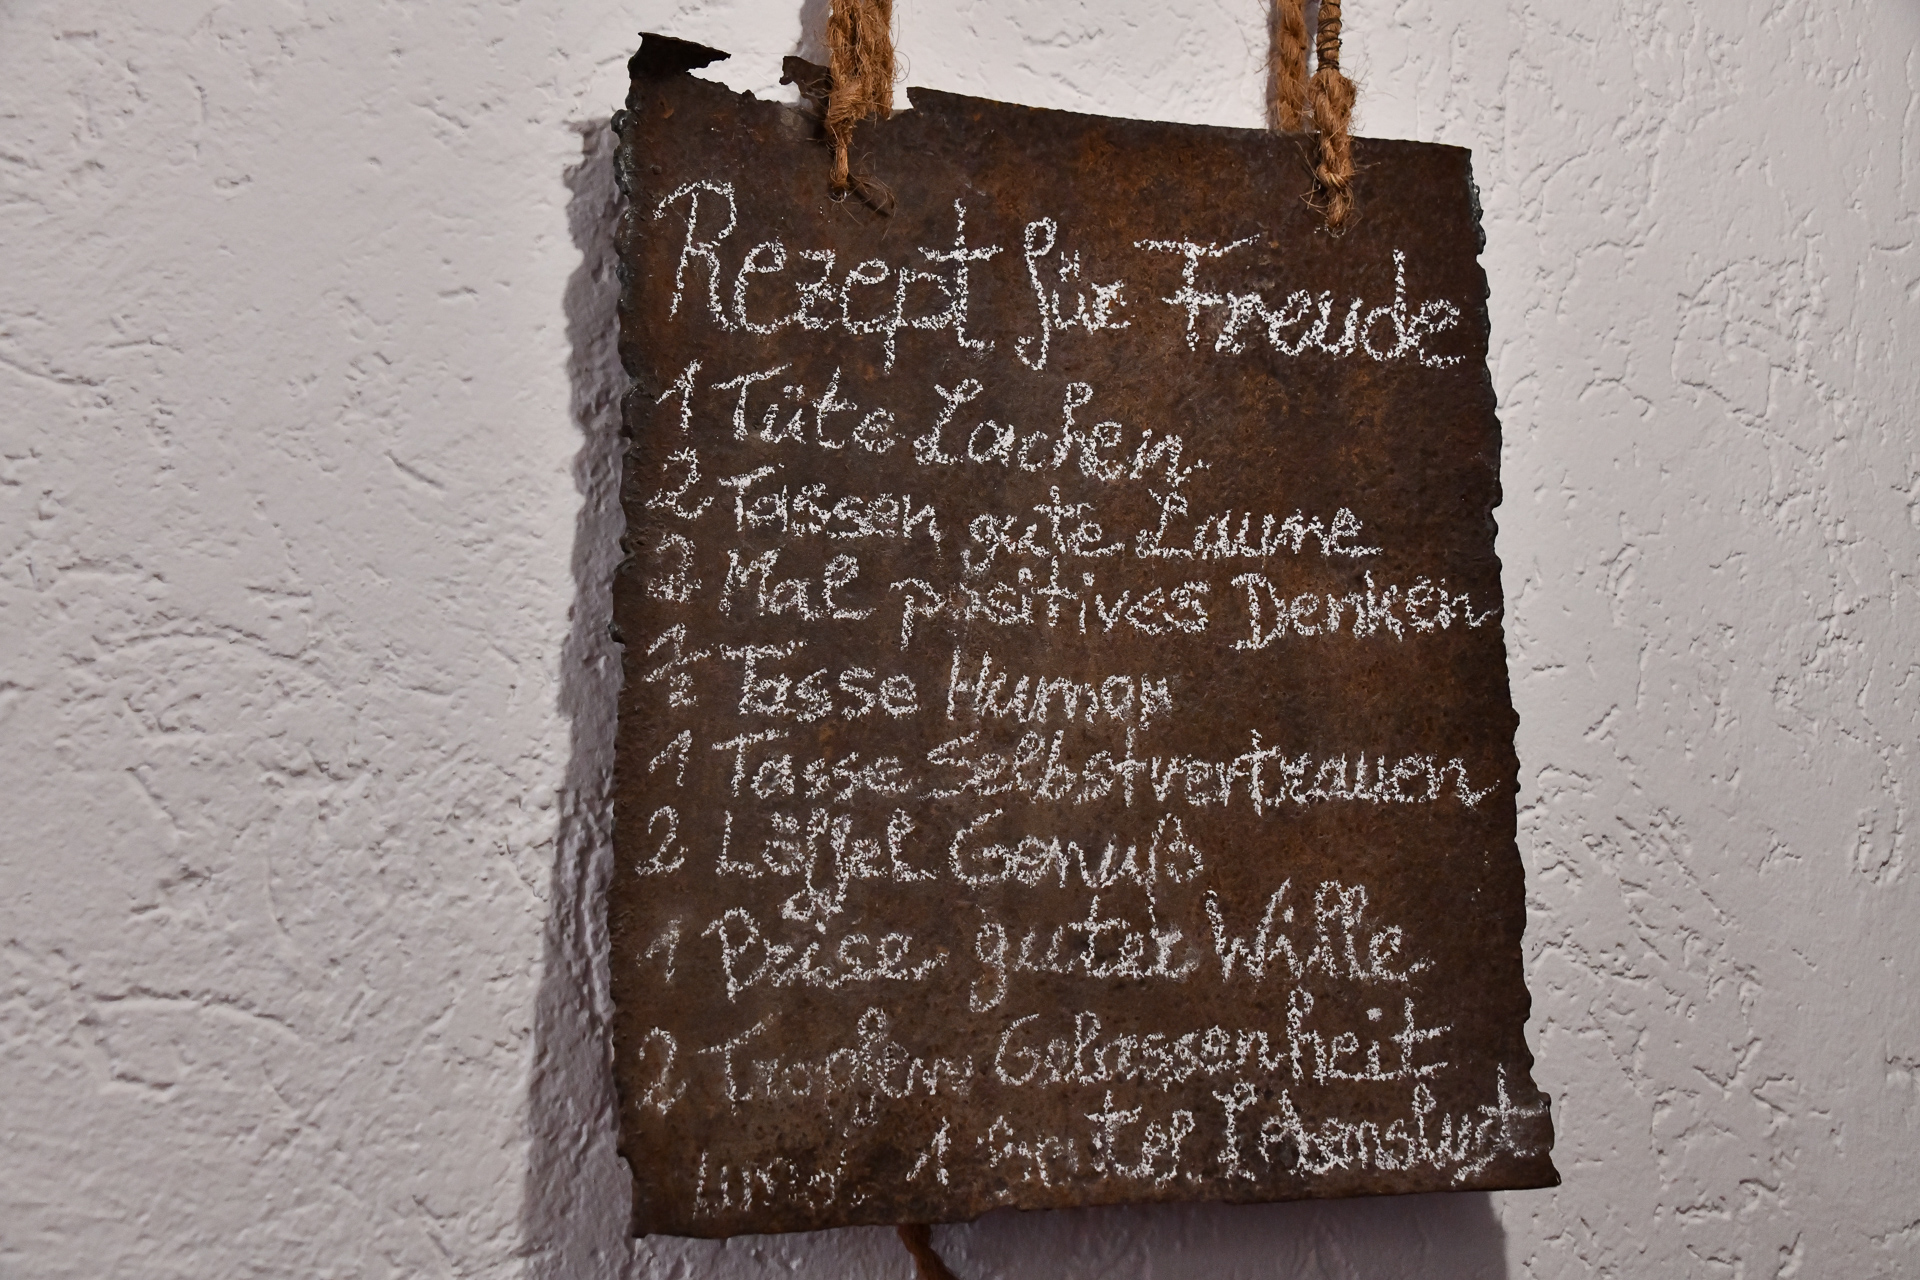 Rezept für Freude
1 Tüte Lachen
2 Tassen gute Laune
2 Mal positives Denken
1/2 Tasse Humor
1 Tasse Selbstvertrauen
2 Löffel Genuß
1 Prise guter Wille
2 Tropfen Gelassenheit
und 1 Lebenslust